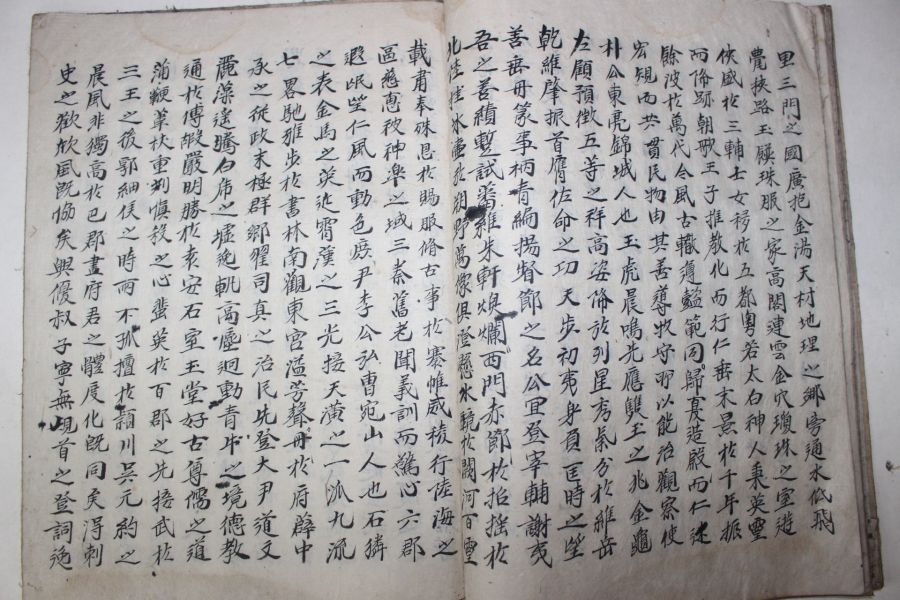 里三門之國廣抱金湯天村地理之鄉旁通水低飛
甍挾路玉屐珠服之家高閣連雲金穴瓊珠之室遊
俠盛於三輔士女移於五都粤若太白神人乘英靈
而脩跡朝歌王子推教化而行仁垂末景於千年振
餘波於萬代令風古轍邁懿範同歸夏造殷而仁迷
宏規而共貫民物由其善導牧守所以能治觀察使
朴公東亮錦城人也玉虎晨鳴光應雙玉之兆金龜
左顧預徵五等之祥高姿俻於列星秀氣分於維岳
乾維肇振首膺佐命之功天步初夷身負匡時之望
善垂冊篆事柄青編揚督節之名公宜登宰輔謝夷
吾之善績暫試番維朱軒煥爛西門赤節於招搖於
北陸懐氷壷於朔野萬像俱澄懸水鏡於關河百靈
載肅奉殊恩於賜服脩古事於褰帷威稜行陸海之
區慈惠被神皐之域三秦舊老聞義訓而驚心六郡
遐氓望仁風而動色府尹李公弘冑宛山人也石猜
之表金馬之英浥霄漢之三光接天潢之一派九流
七畧馳雅步於書林南觀東宮溢芳聲於府辟中
丞之從政末極群鄉翟司真之治民先登大尹道文
麗藻遠騰白席之墟逸軌高塵迥動青帘之境德教
通於傅毅嚴明勝於袁安石室玉堂好古尊儒之道
蒲鞭葦杖重刑愼殺之心蜚英於百郡之先接武於
三王之後郭細侯之時雨不孤擅於潁川吳元約之
晨風非獨高於巴郡畫府君之體展化旣同矣淂刺
史之歡欣風旣恊矣輿優叔子寧無峴首之登詞逸